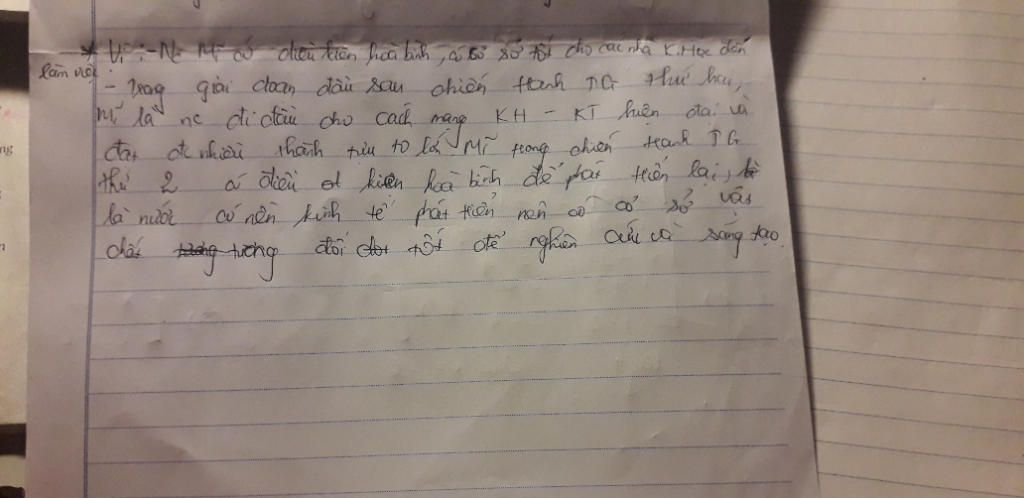 * Vì: - Nc Mĩ có điều kiện hoà bình, có sở tốt cho các nhà K.Học đến
làm việc
- Trong giai đoạn đầu sau chiến tranh TG thứ hai,
Mĩ là nc đi đầu cho cách mạng KH - KT hiện đại và
đạt đc nhiều thành tựu to lớn. Mĩ trong chiến tranh TG
thứ 2 có điều kiện hoà bình để phát triển lại,
là nước có nền kinh tế phát triển nên có cơ sở vật
chất tương đối tốt để nghiên cứu và sáng tạo.